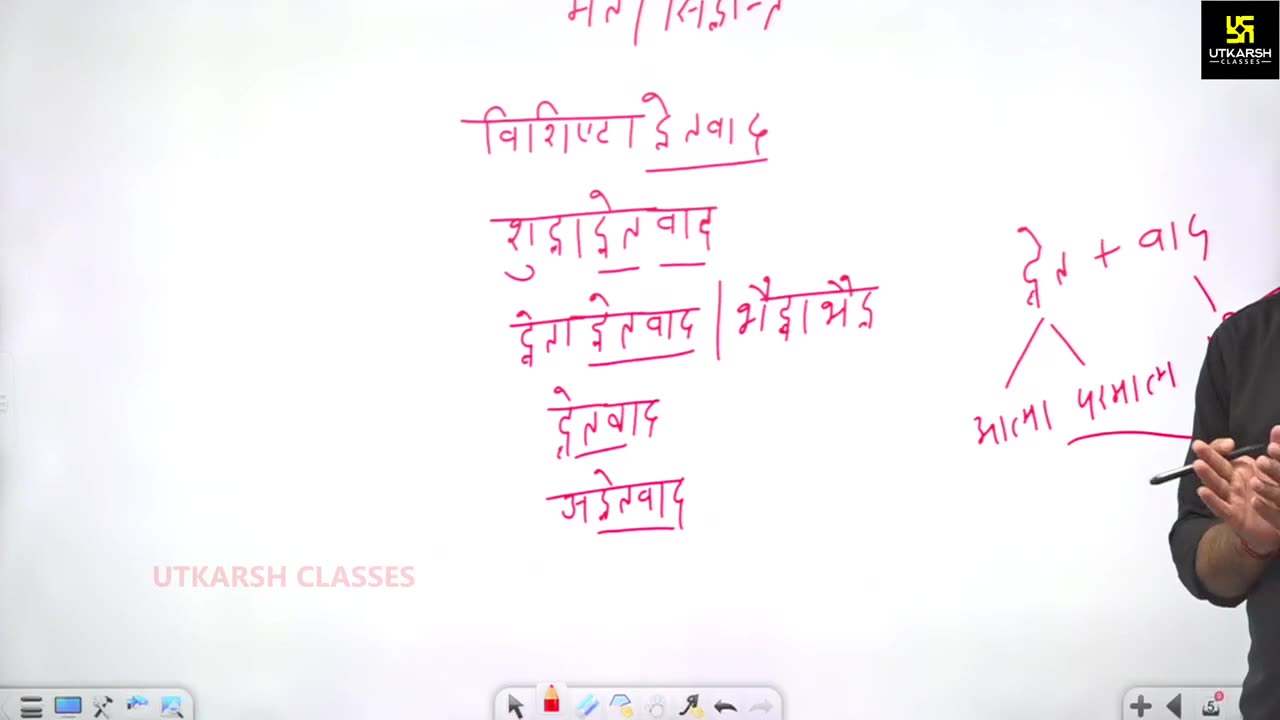 मत / सिद्धान्त
विशिष्टाद्वेतवाद
शुद्धाद्वेतवाद
द्वेताद्वेतवाद | भैद्धाभैद्ध
द्वेतवाद
अद्वेतवाद
द्वेत + वाद
आत्मा परमात्म
UTKARSH CLASSES
UTKARSH
CLASSES
5